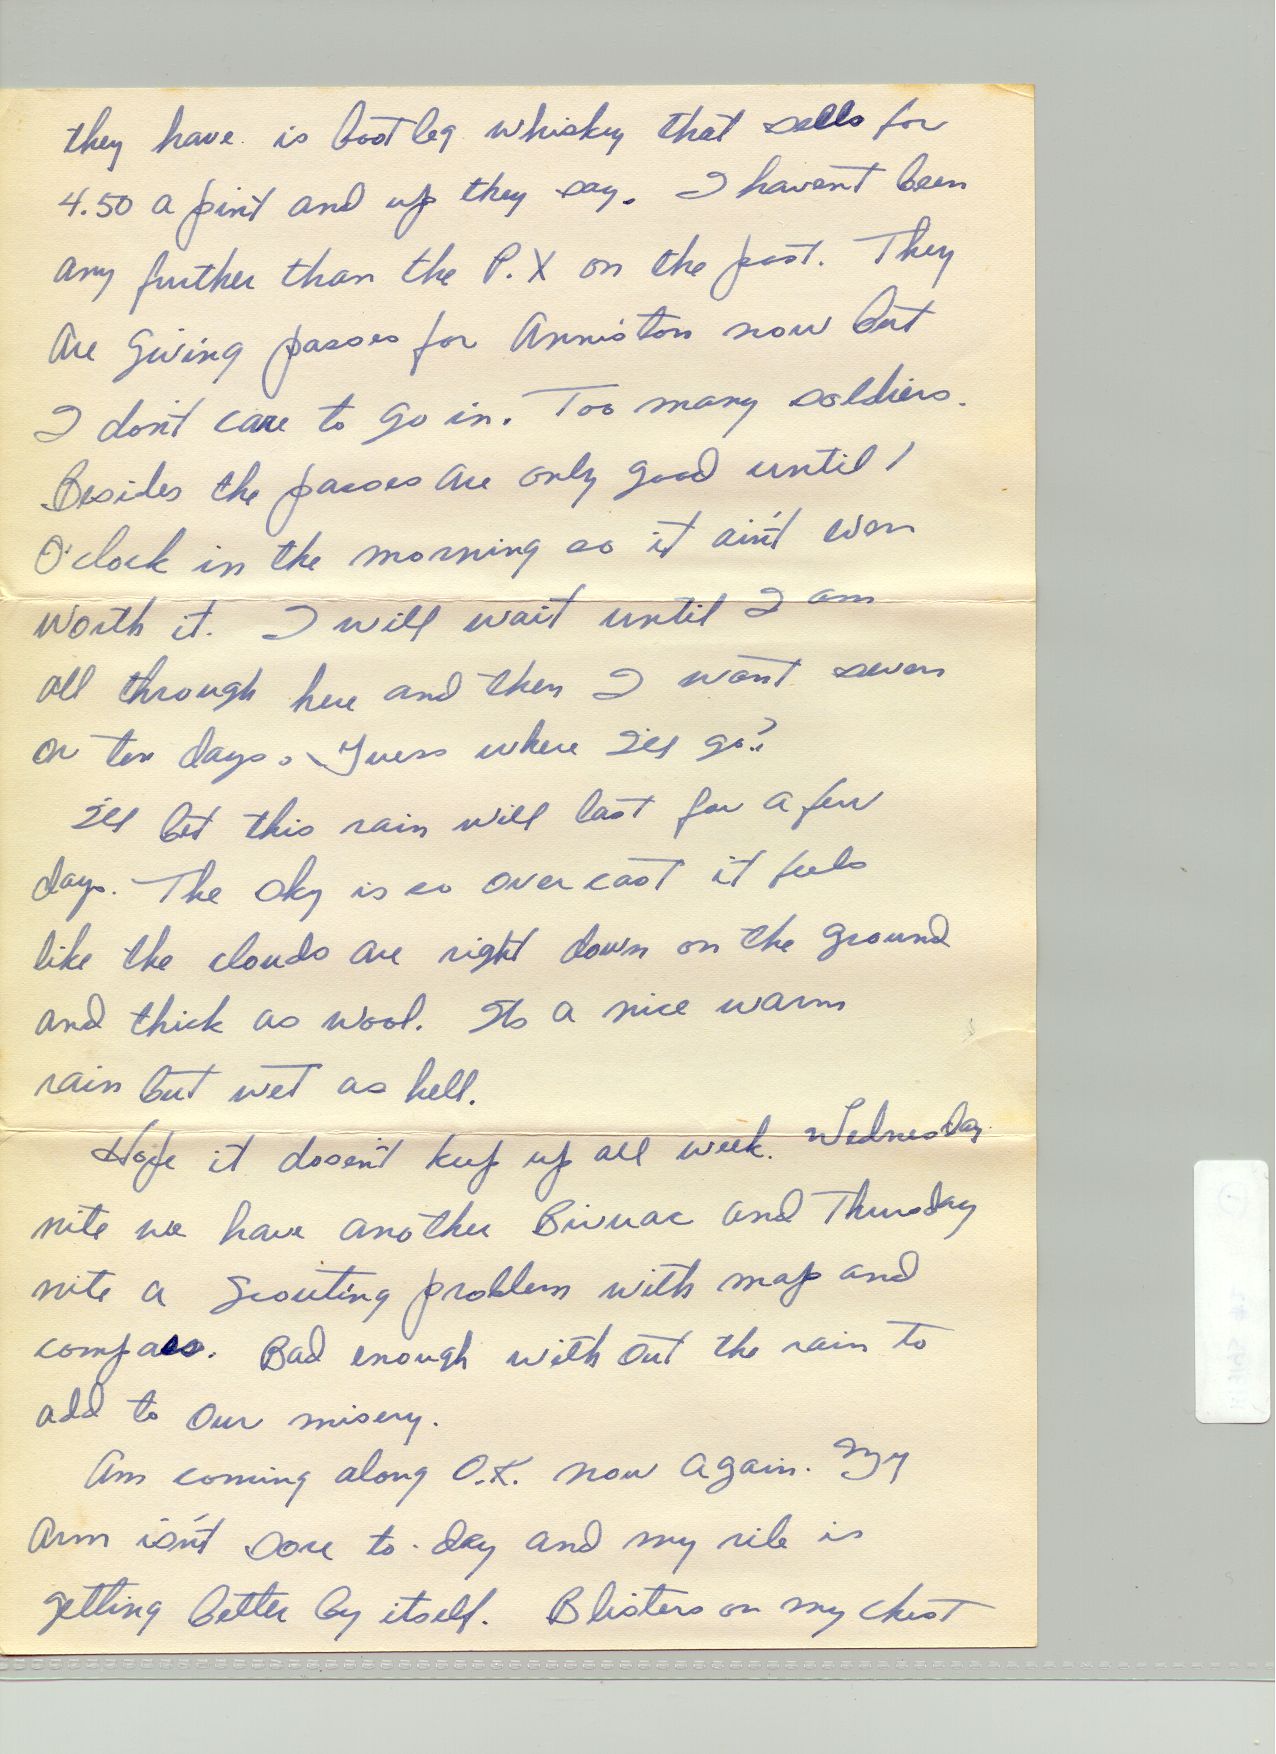 they have is boot leg whiskey that sells for
4.50 a pint and up they say. I havent been
any further than the P.X on the post. They
are giving passes for Anniston now but
I don't care to go in. Too many soldiers.
Besides the passes are only good until 1
O'clock in the morning so it ain't even
worth it. I will wait until I am
all through here and then I want seven
or ten days. Guess where I'll go?
I'll bet this rain will last for a few
days. The sky is so over cast it feels
like the clouds are right down on the ground
and thick as wool. Its a nice warm
rain but wet as hell.
Hope it dosen't keep up all week. Wednesday
nite we have another Bivuac and Thursday
nite a Scouting problem with map and
compass. Bad enough with out the rain to
add to our misery.
Am coming along O.K. now again. My
arm isn't sore to-day and my rib is
getting better by itself. Blisters on my chest